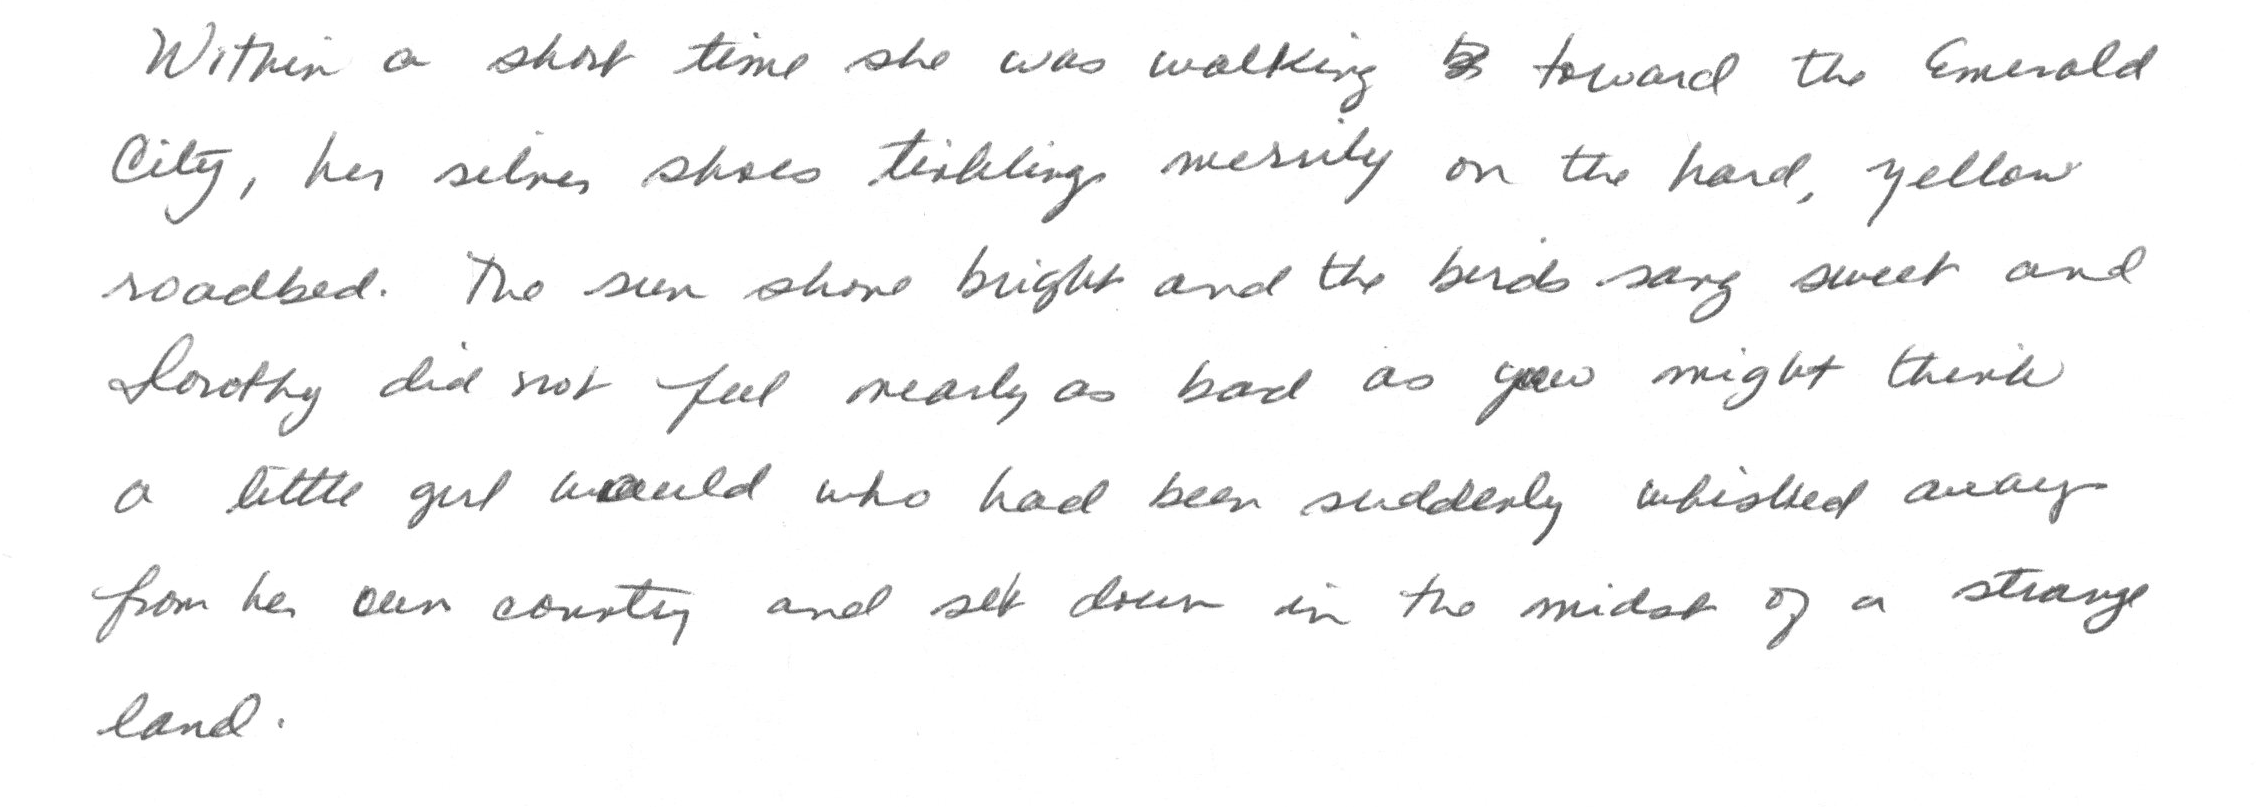 Within a short time she was walking toward the Emerald
City, her silver shoes tinkling merrily on the hard, yellow
roadbed. The sun shone bright and the birds sang sweet and
Dorothy did not feel nearly as bad as you might think
a little girl would who had been suddenly whisked away
from her own country and set down in the midst of a strange
land.